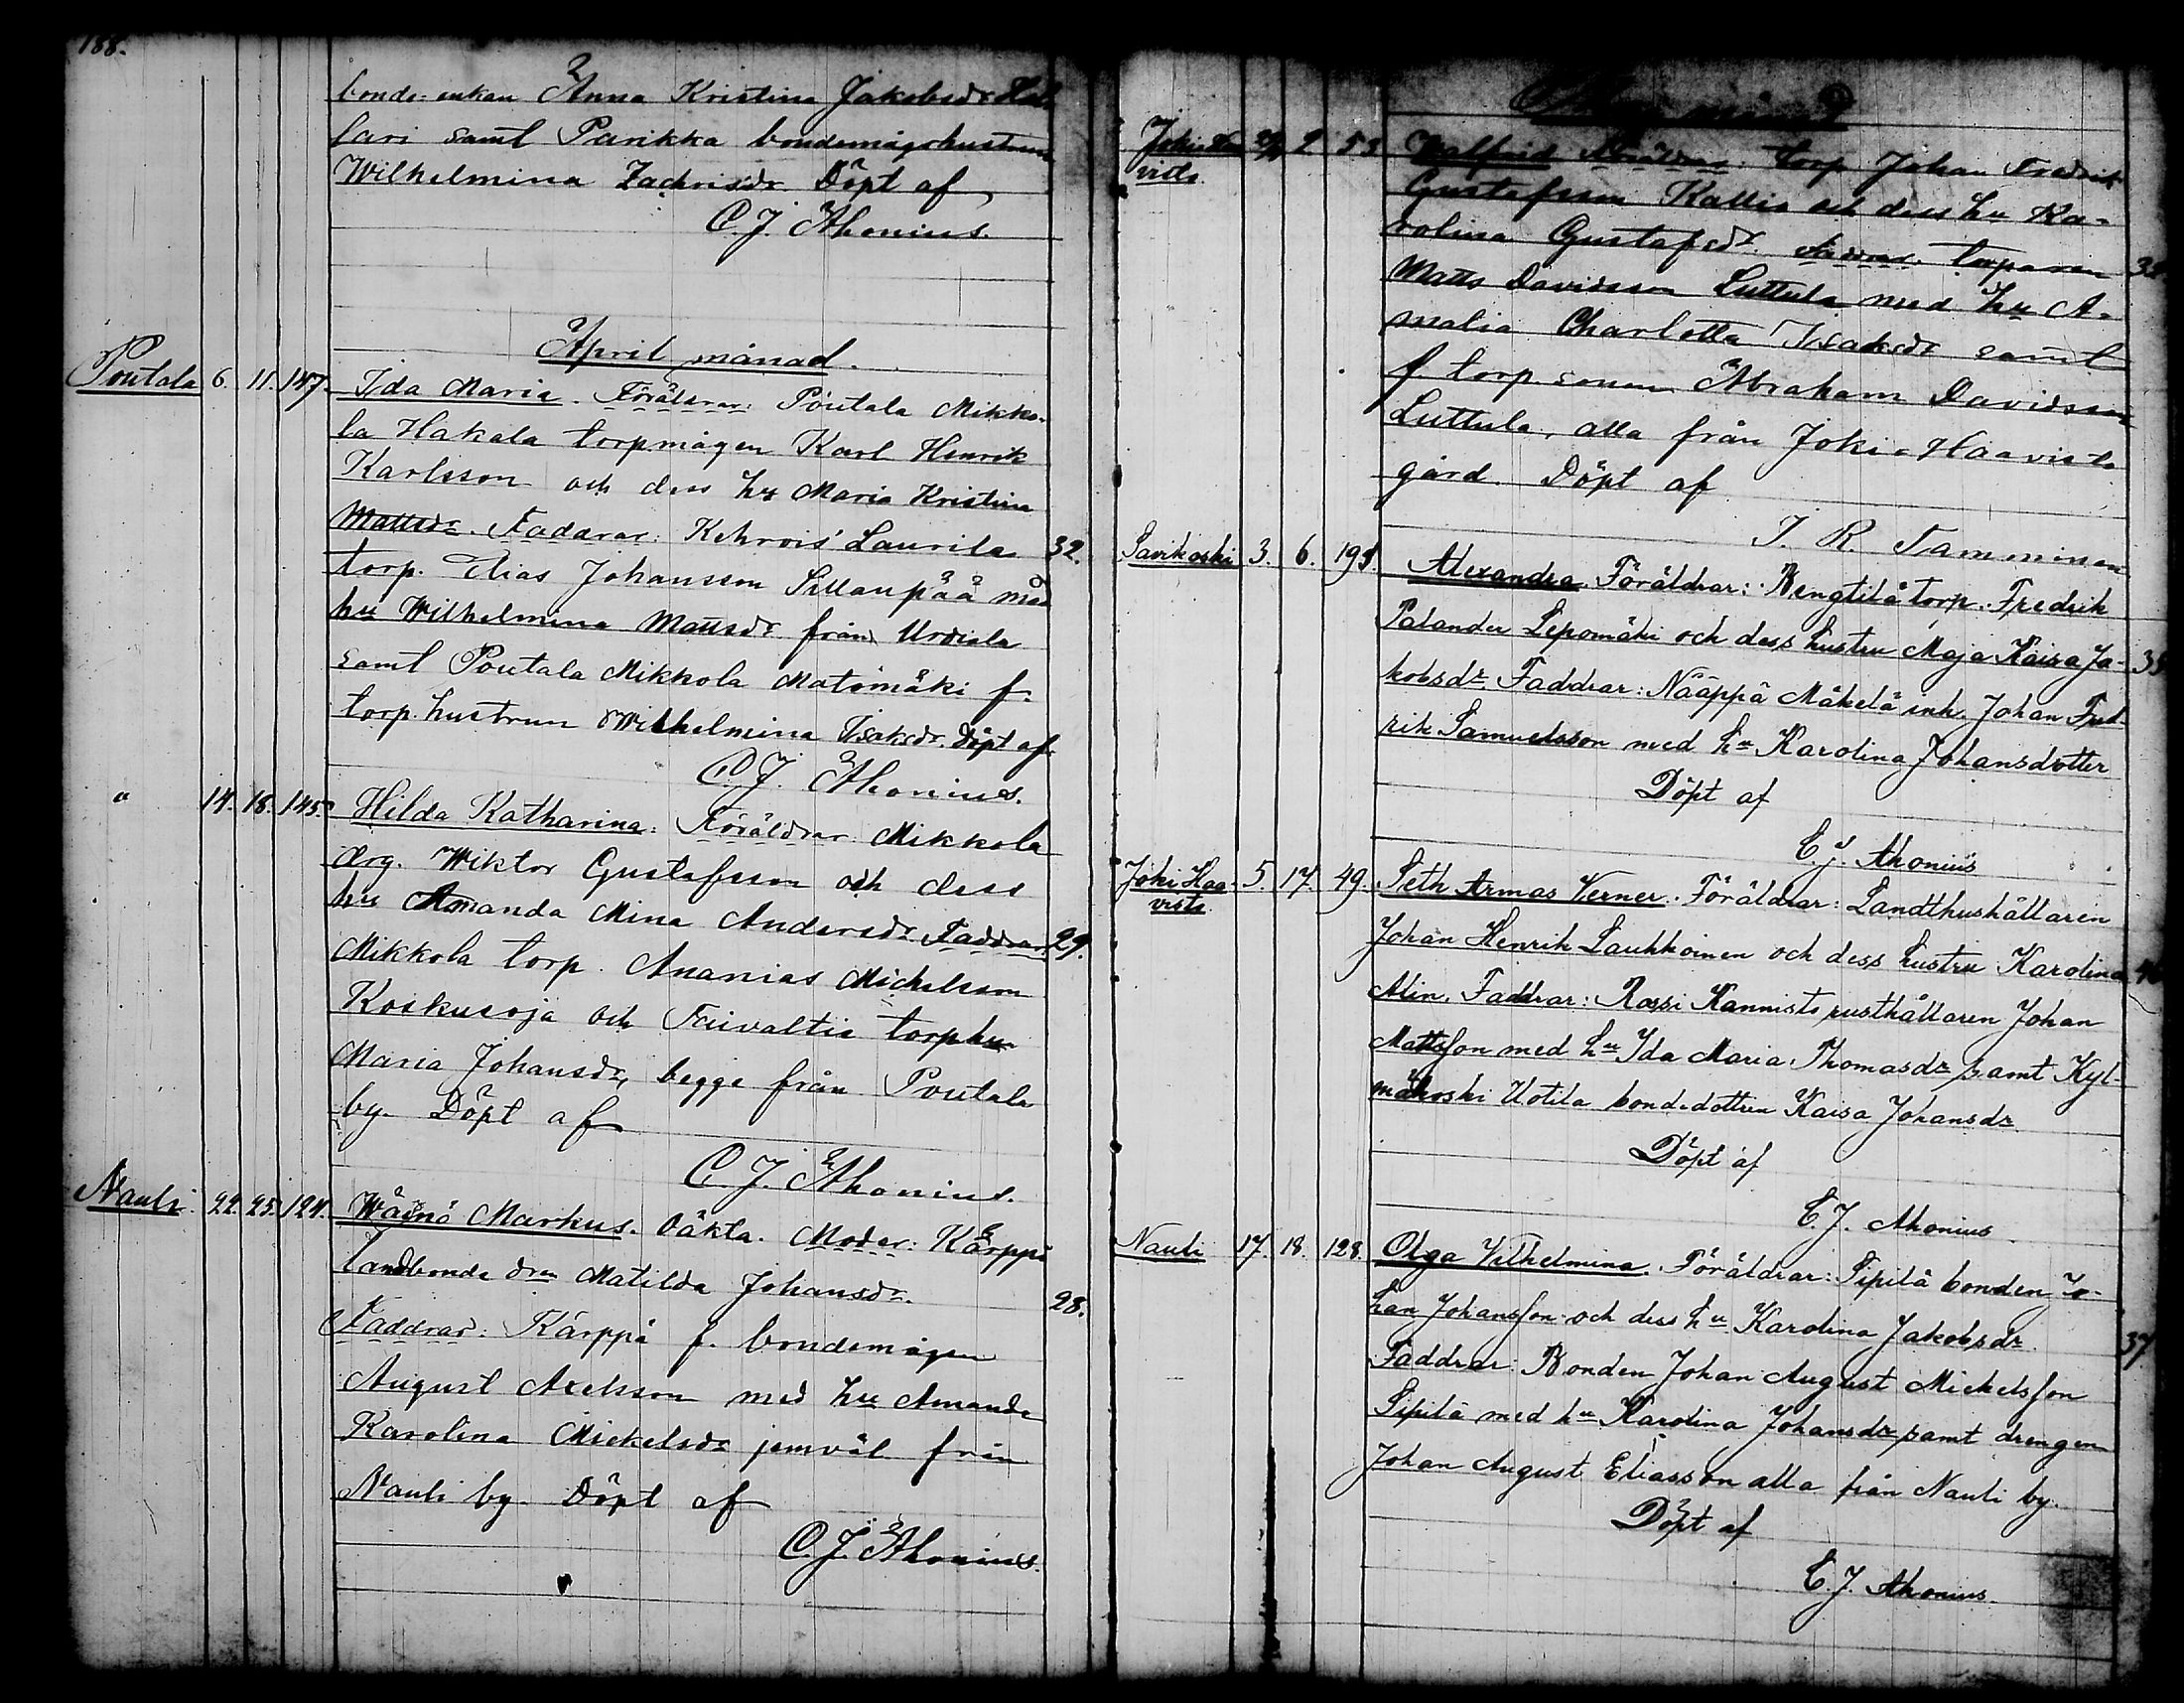 188.
bonde-enkan Anna Kristina Jakobsdr
lari samt Parikka bondemågshustrun
Wilhelmina Zachrisdr. Döpt af
C. J. Ahonius.
April månad.
Poutala 6. 11. 147. Ida Maria. Föräldrar: Poutala Mikko-
la Hakala torpmågen Karl Henrik
Karlsson och dess hu Maria Kristina
Mattsdr. Faddrar: Kehrois Laurila 32.
torp. Elias Johansson Sillanpää med
hu Wilhelmina Mattsdr från Urdiala
samt Poutala Mikkola Matomäki f.
torp. hustrun Wilhelmina Isaksdr. Döpt af
C. J. Ahonius.
" 14. 18. 145. Hilda Katharina: Föräldrar: Mikkola
drg. Wiktor Gustafsson och dess
hu Amanda Mina Andersdr Faddrar: 29.
Mikkola torp. Ananias Michelsson
Koskusoja och Taivaltie torphu
Maria Johansdr, begge från Poutala
by. Döpt af
C. J. Ahonius.
Nauli 22. 25. 124. Wäinö Markus. Oäkta. Moder: Kärppä
landbonde drn Matilda Johansdr. 28.
Faddrar: Kärppä f. bondemågen
August Axelsson med hu Amanda
Karolina Mickelsdr jemväl från
Nauli by. Döpt af
C. J. Ahonius.
månad
Joki Haa- 2 53 Walfrid Föräldrar: torp. Johan Fredrik
visto.
Gustafsson Kallio och dess hu Ka-
rolina Gustafsdr. Faddrar: torparen
Matts Davidsson Luttula med hu A-
malia Charlotta Isaksdr samt
f. torp. sonen Abraham Davidsson
Luttula, alla från Joki-Haavisto
gård. Döpt af
I. R. Tamminen
Savikoski 3. 6. 198. Alexandra. Föräldrar: Bengtilä torp. Fredrik
Palander Lepomäki och dess hustru Maja Kaisa Ja-
kobsdr. Faddrar: Nääppä Mäkelä inh. Johan Fred-
rik Samuelsson med hu Karolina Johansdotter
Döpt af
C. J. Ahonius
Joki Haa- 5. 17. 49. Seth Armas Verner. Föräldrar: Landthushållaren
visto.
Johan Henrik Laukkoinen och dess hustru Karolina
Alin. Faddrar: Rossi Kannisto rusthållaren Johan
Mattsson med hu Ida Maria Thomasdr samt Kyl-
mäkoski Uotila bondedottren Kaisa Johansdr
Döpt af
C. J. Ahonius
Nauli 17. 18. 128. Olga Vilhelmina. Föräldrar: Sipilä bonden Jo-
han Johansson och dess hu Karolina Jakobsdr. 37
Faddrar: Bonden Johan August Mickelsson
Sipilä med hu Karolina Johansdr samt drengen
Johan August Eliasson alla från Nauli by.
Döpt af
C. J. Ahonius.